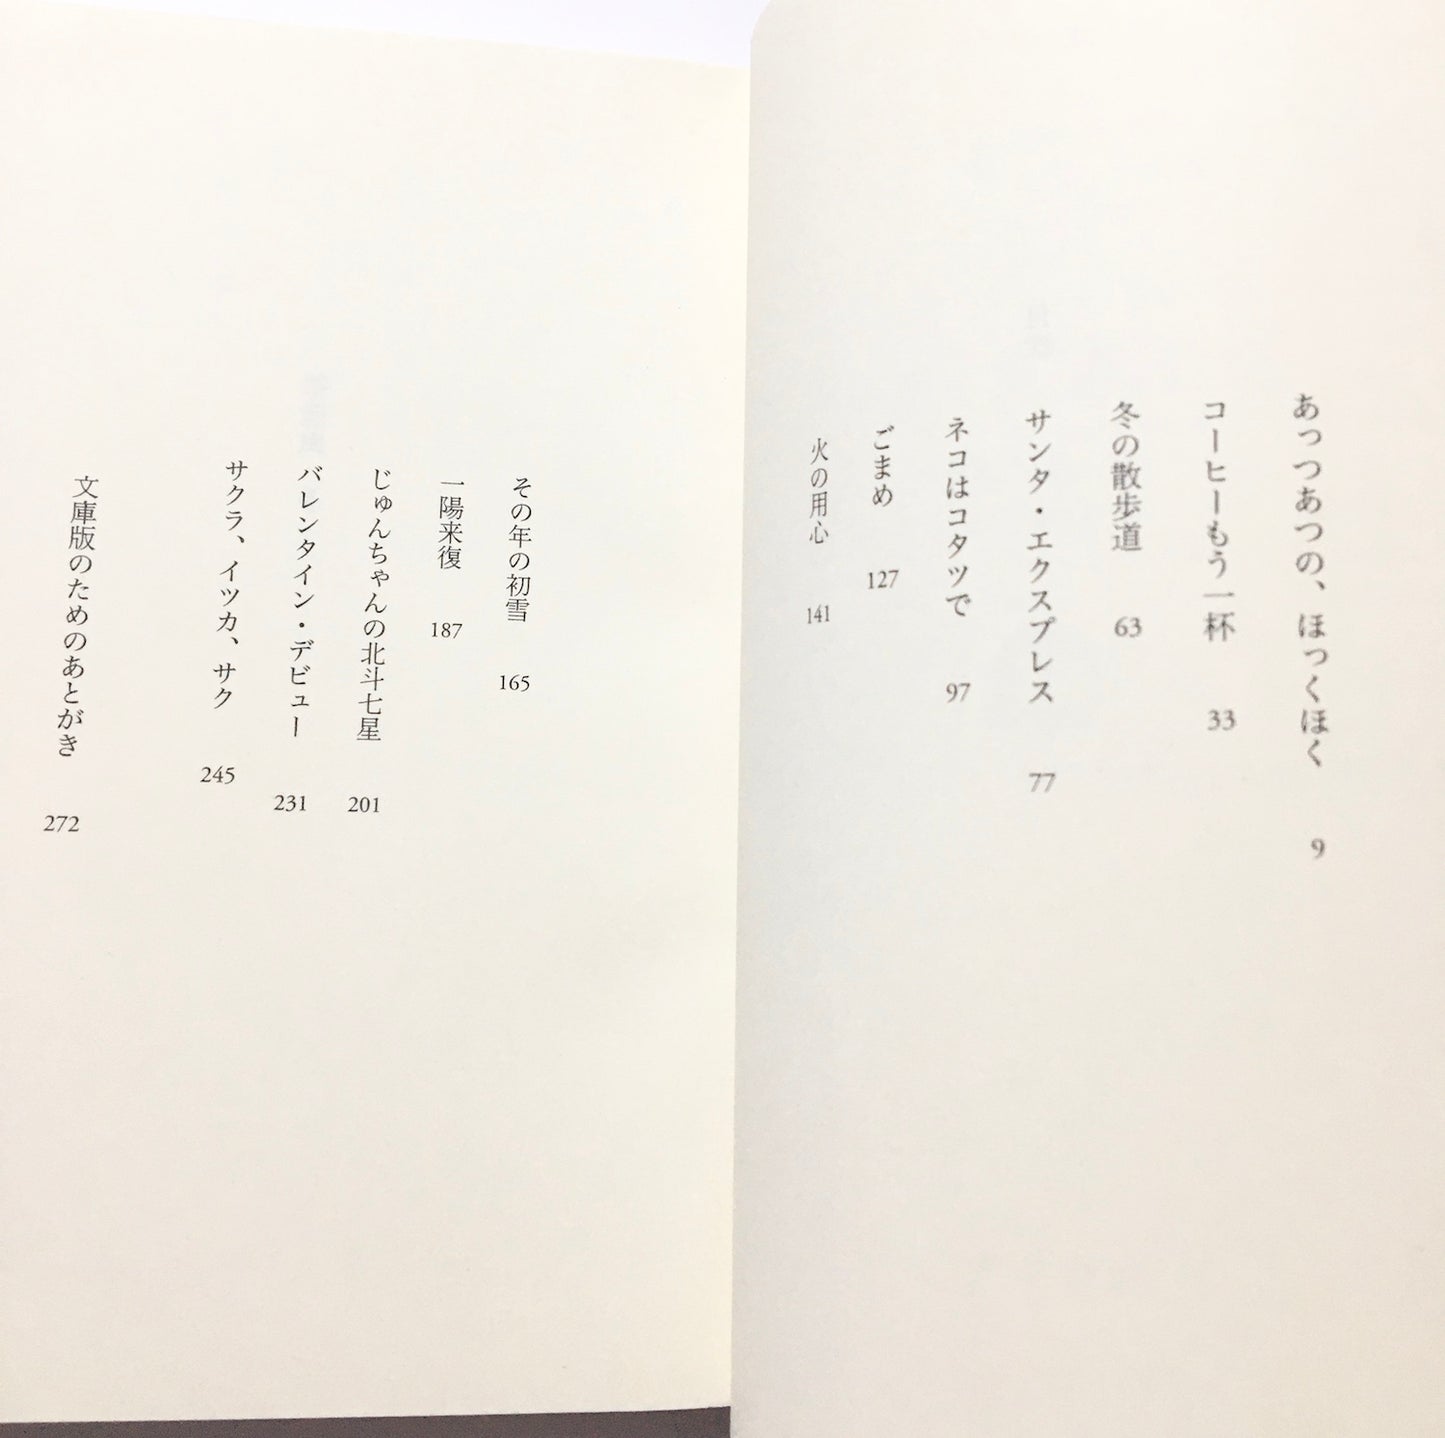 あっつあつの、ほっくほく 9
コーヒーもう一杯 33
冬の散歩道 63
サンタ・エクスプレス 77
ネコはコタツで 97
ごまめ 127
火の用心 141
その年の初雪 165
一陽来復 187
じゅんちゃんの北斗七星 201
バレンタイン・デビュー 231
サクラ、イツカ、サク 245
文庫版のためのあとがき 272